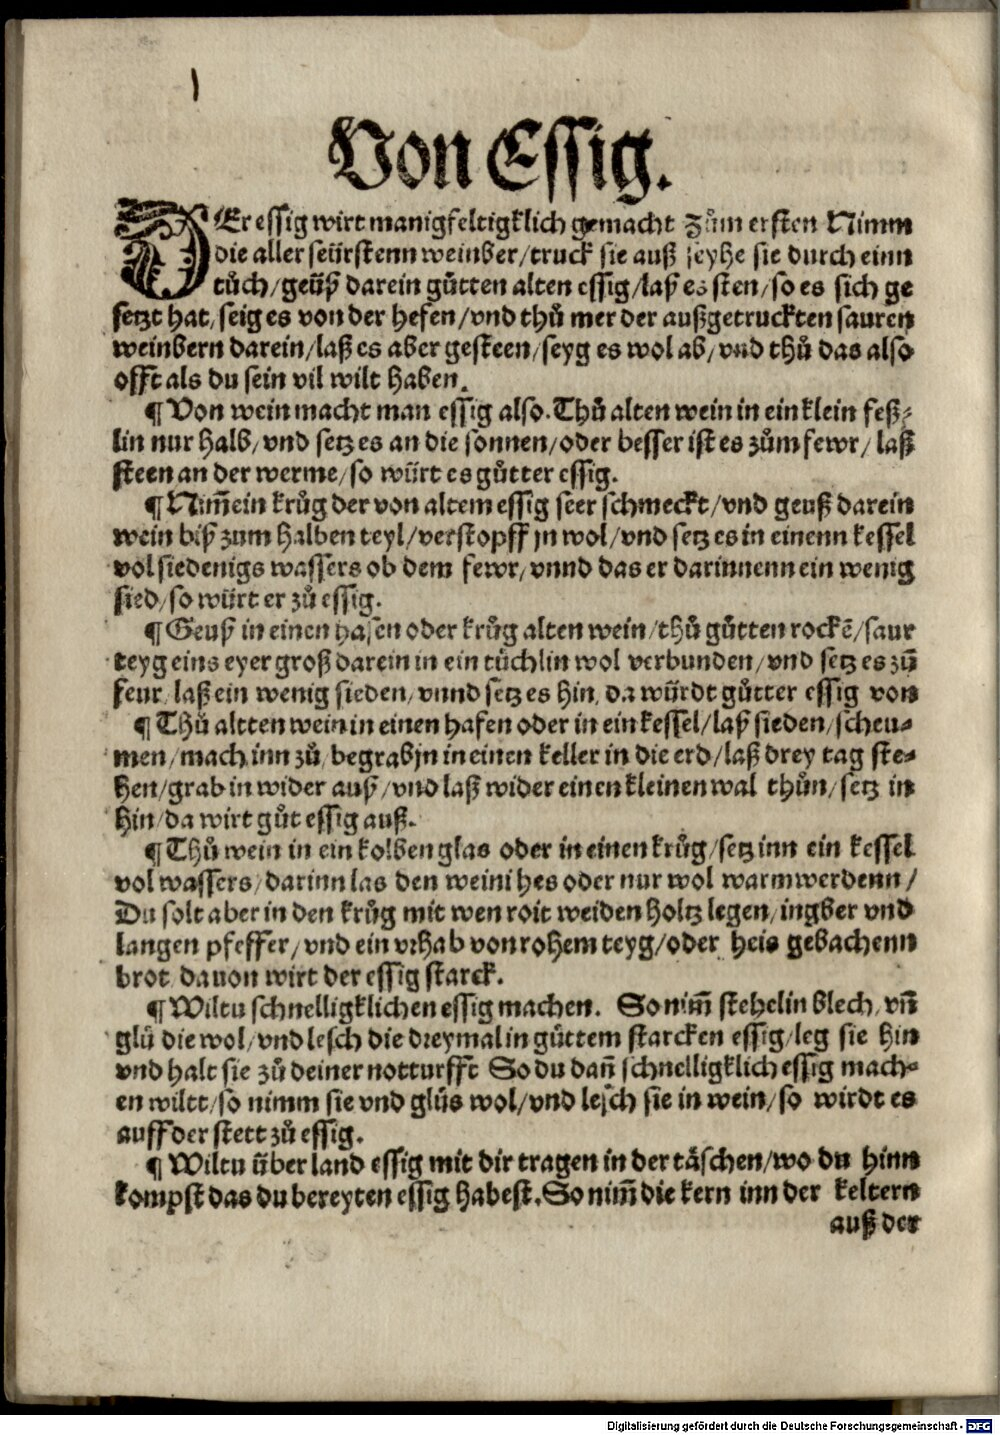 Von Essig.
DEr essig wirt manigfeltigklich gemacht Zům ersten Nimm
die aller seürstenn weinber/truck sie auß seyhe sie durch einn
tůch/geüß darein gůtten alten essig/laß es sten/so es sich ge
setzt hat/seig es von der hefen/vnd thů mer der außgetruckten sauren
weinbern darein/laß es aber gesteen/seyg es wol ab/vnd thů das also
offt als du sein vil wilt haben.
¶ Von wein macht man essig also. Thů alten wein in ein klein feß⸗
lin nur halb/vnd setz es an die sonnen/oder besser ist es zům fewr/laß
steen an der werme/so würt es gůtter essig.
¶ Nim̄ ein krůg der von altem essig seer schmeckt/vnd geuß darein
wein biß zum halben teyl/verstopff jn wol/vnd setz es in einenn kessel
vol siedenigs wassers ob dem fewr/vnnd das er darinnenn ein wenig
sied/so würt er zů essig.
¶ Geuß in einen hafen oder krůg alten wein/thů gůtten rockē/saur
teyg eins eyer groß darein in ein tüchlin wol verbunden/vnd setz es zū
feur/laß ein wenig sieden/vnnd setz es hin/da würdt gůtter essig von
¶ Thů altten wein in einen hafen oder in ein kessel/laß sieden/scheu⸗
men/mach inn zů/begrab jn in einen keller in die erd/laß drey tag ste⸗
hen/grab in wider auß/vnd laß wider einen kleinen wal thůn/setz in
hin/da wirt gůt essig auß.
¶ Thů wein in ein kolben glas oder in einen krůg/setz inn ein kessel
vol wassers/darinn las den wein hes oder nur wol warm werdenn/
Du solt aber in den krůg mit wen roit weiden holtz legen/ingber vnd
langen pfeffer/vnd ein vrhab von rohem teyg/oder heis gebachenn
brot dauon wirt der essig starck.
¶ Wiltu schnelligklichen essig machen. So nim̄ stehelin blech/vn̄
glü die wol/vnd lesch die dreymal in gůttem starcken essig/leg sie hin
vnd halt sie zů deiner notturfft So du dan̄ schnelligklich essig mach⸗
en wiltt/so nimm sie vnd glüs wol/vnd lesch sie in wein/so wirdt es
auff der stett zů essig.
¶ Wiltu über land essig mit dir tragen in der täschen/wo du hinn
kompst das du bereyten essig habest. So nim̄ die kern inn der keltern
auß der
Digitalisierung gefördert durch die Deutsche Forschungsgemeinschaft - DFG